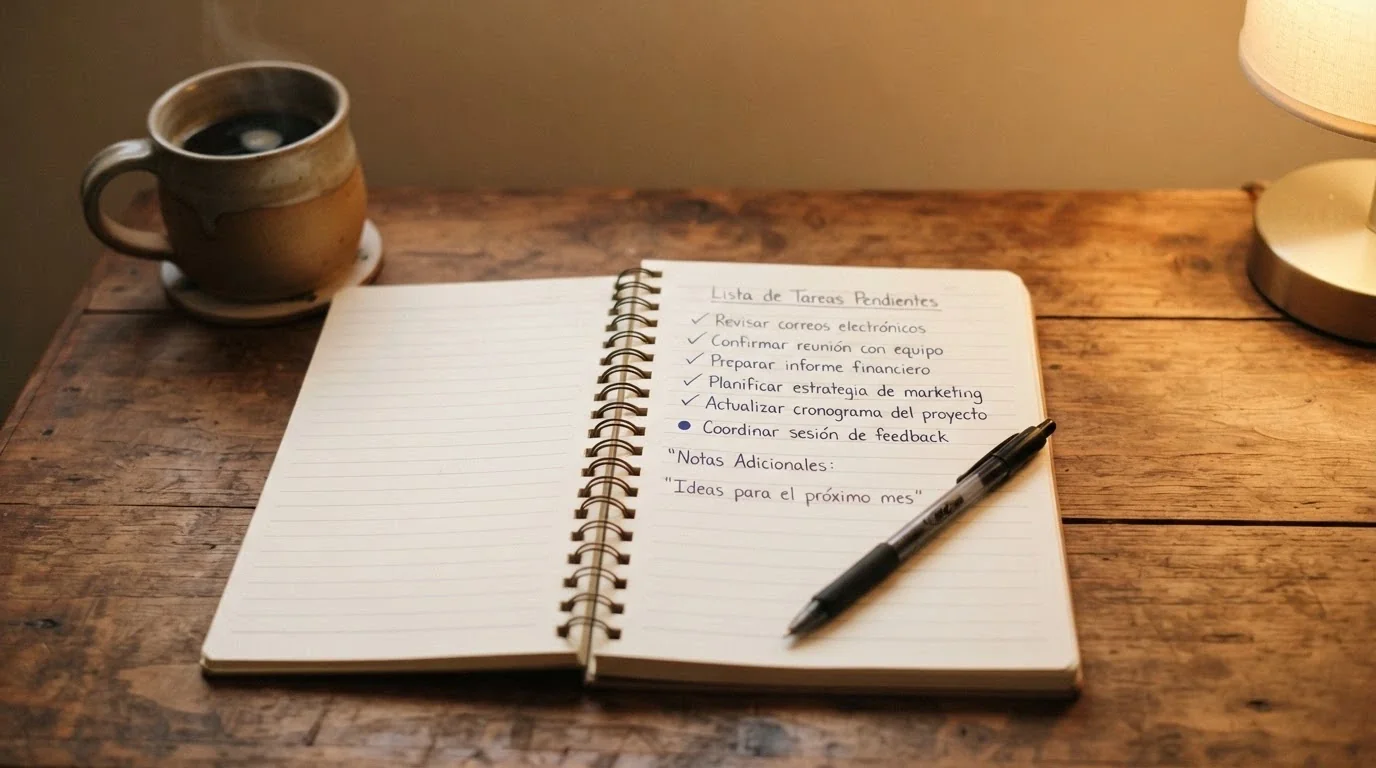 Lista de Tareas Pendientes
✓ Revisar correos electrónicos
✓ Confirmar reunión con equipo
✓ Preparar informe financiero
✓ Planificar estrategia de marketing
✓ Actualizar cronograma del proyecto
● Coordinar sesión de feedback
"Notas Adicionales:
"Ideas para el próximo mes"